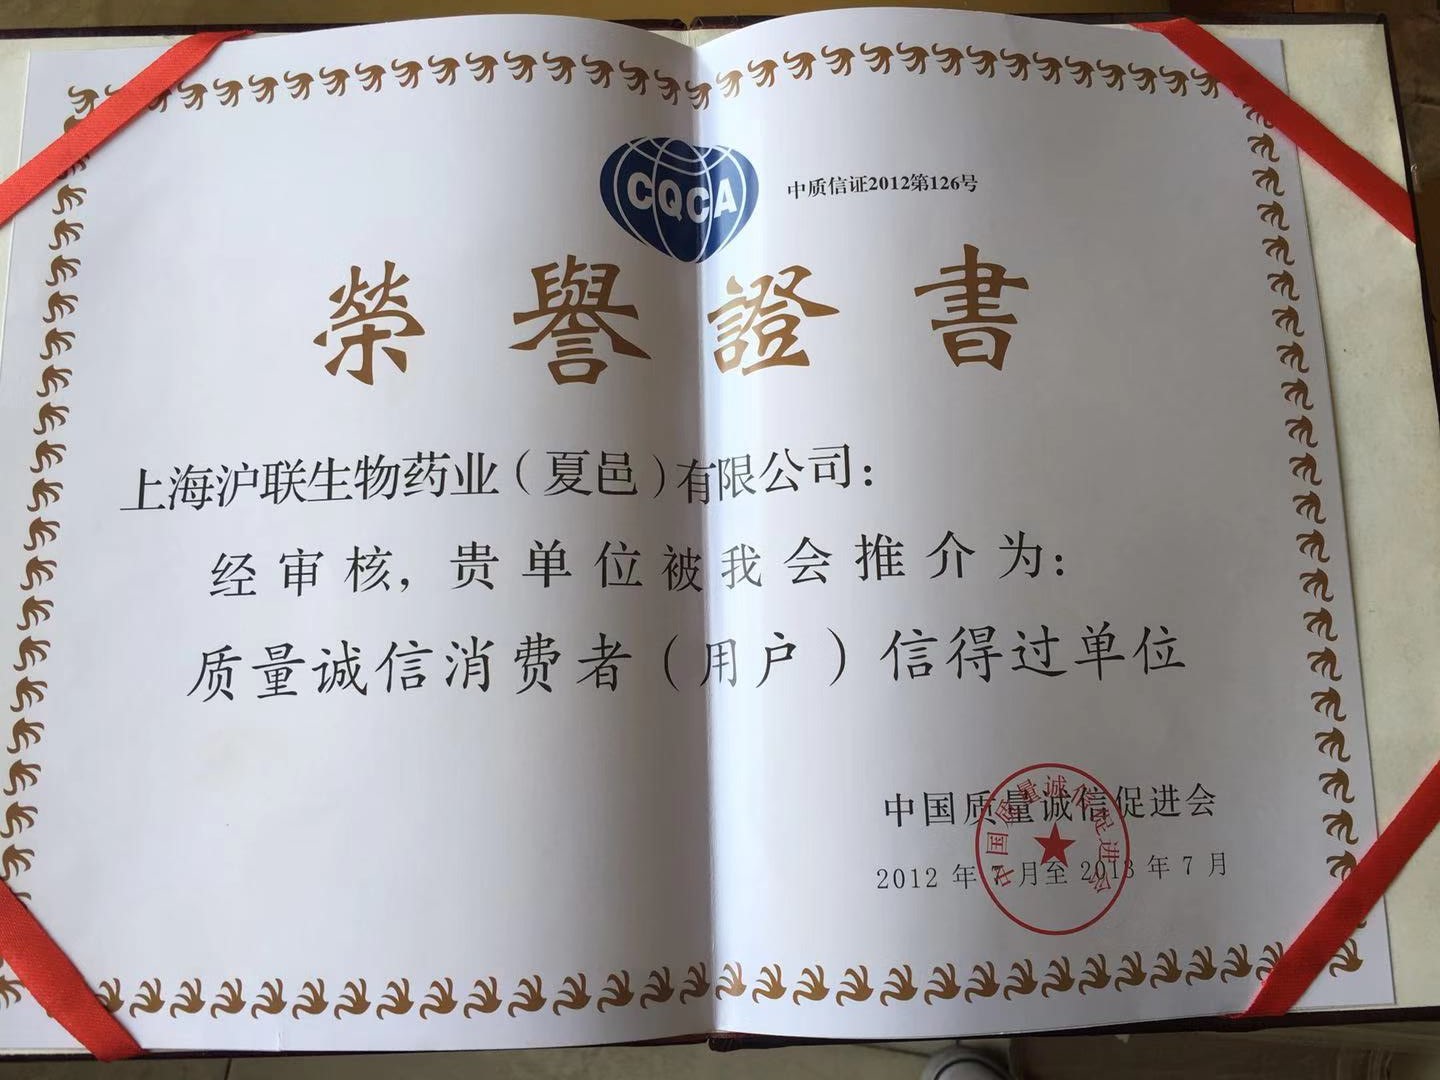 CQCA
中质信证2012第126号
榮譽證書
上海沪联生物药业（夏邑）有限公司：
经审核，贵单位被我会推介为：
质量诚信消费者（用户）信得过单位
中国质量诚信促进会
2012年7月至2013年7月
中国质量诚信促进会